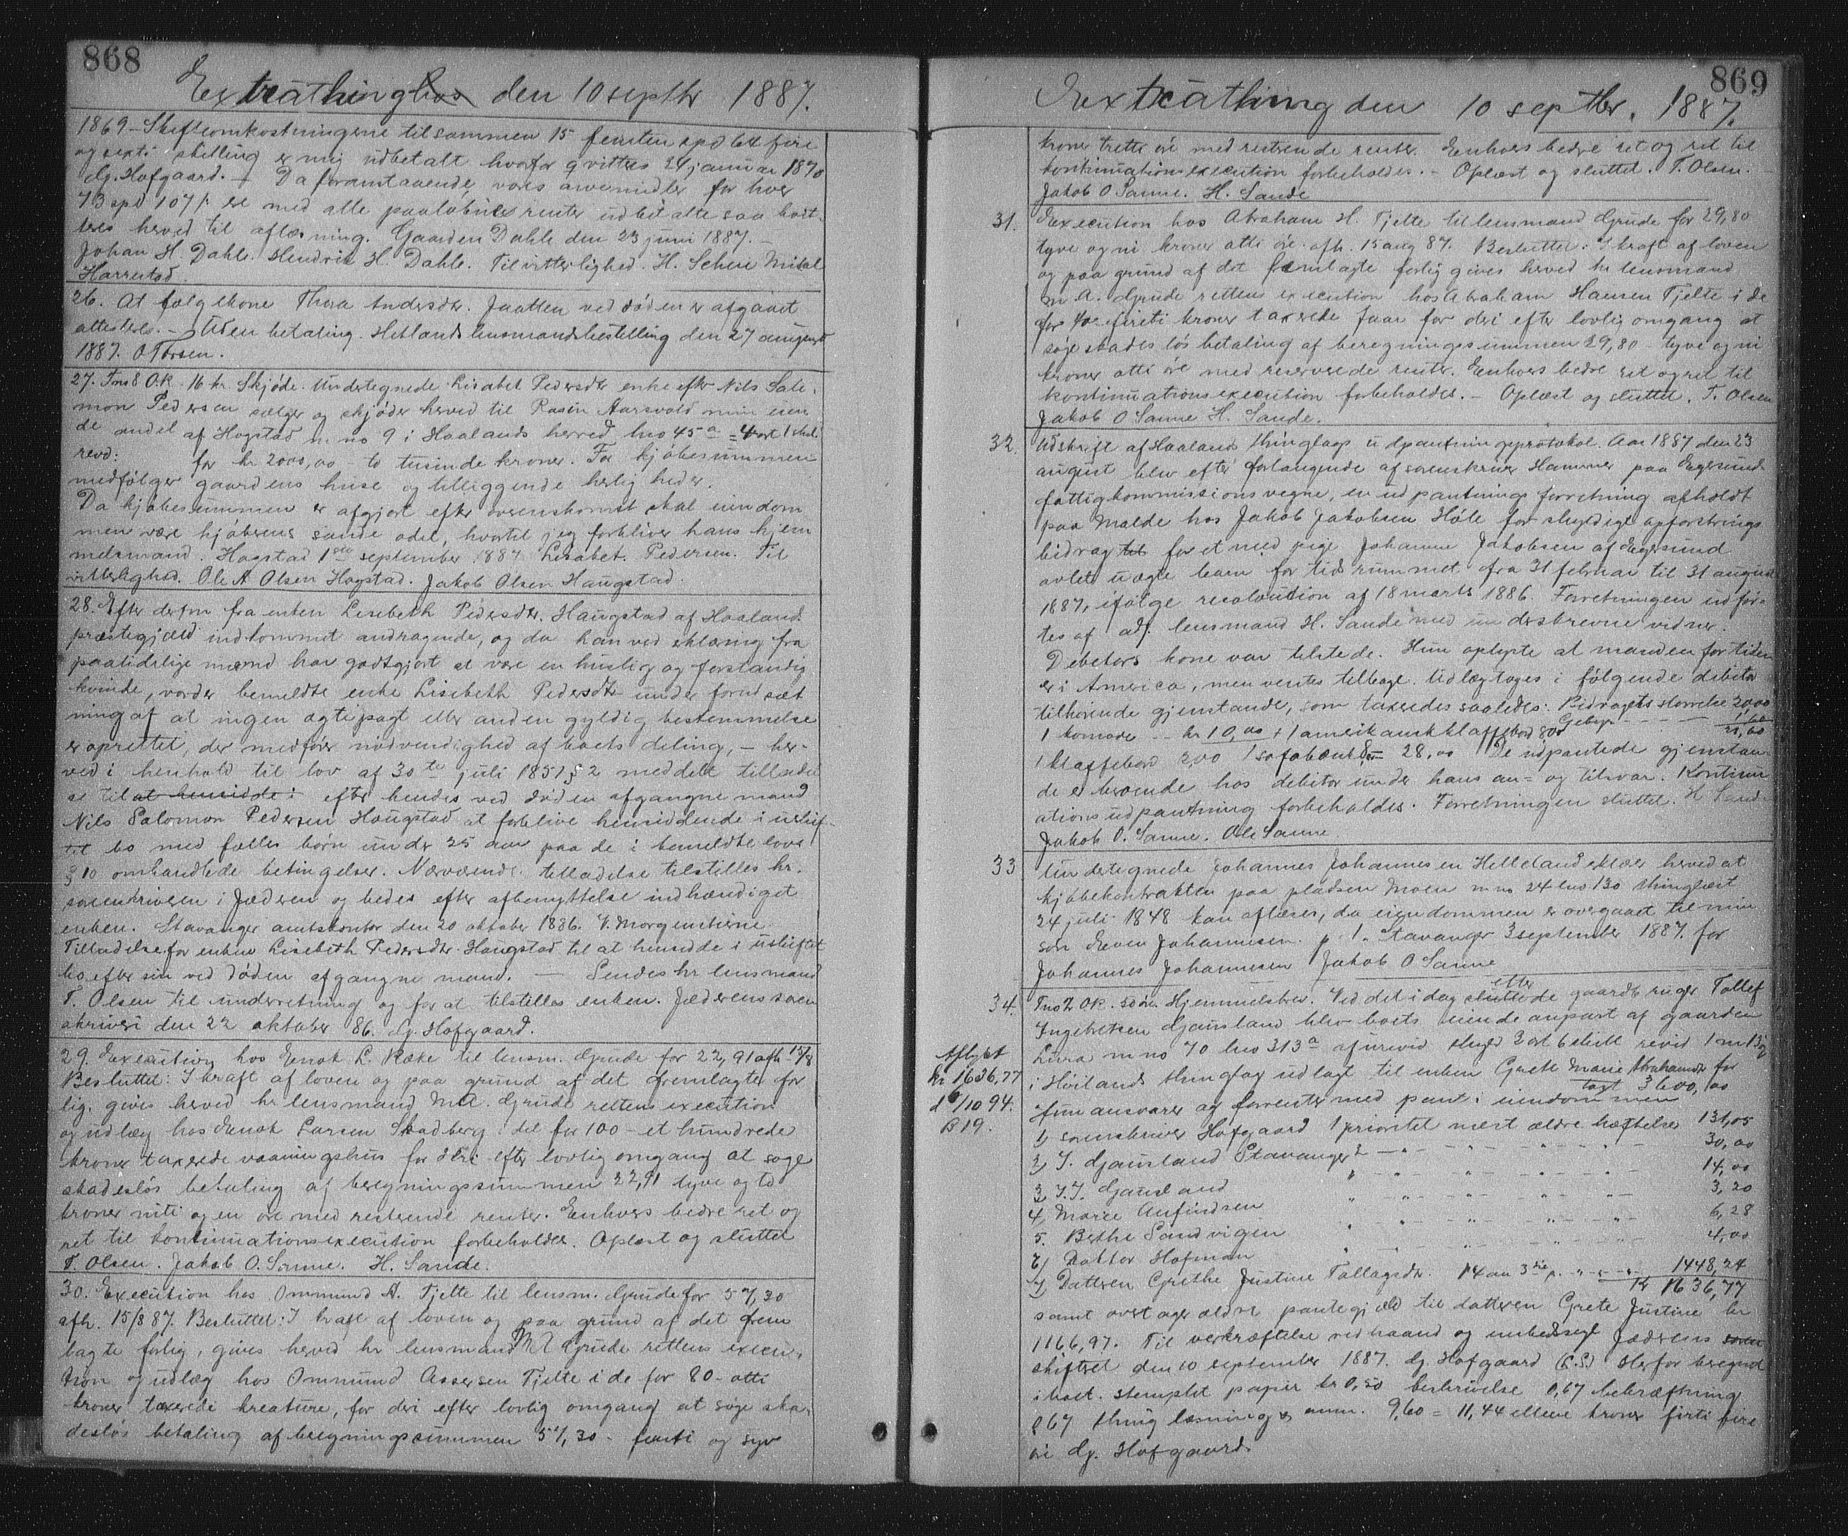 868
Extrathing den 10 septbr 1887.
1869 - Skifteomkostningerne tilsammen 15 femten spd 64 fire
og sexti skilling er mig udbetalt hvorfor qvittes 24 januar 1870
Hofgaard. - Da foranstaaende vores arvemidler for hver
73 spd 107 s er med alle paaløbne renter udbetalte saa kvit-
teres herved til aflæsning. Gaarden Dahle den 23 juni 1887. -
Johan H. Dahle. Hendrik H. Dahle. Til vitterlighed. H. Scheie Mikal
Harrestad.
26. At følgekone Thera Andersdtr. Jaatten ved døden er afgaaet
attesteres. - Uden betaling. Hetlands lensmandsbestilling den 27 august
1887. O Torsen.
27. Tno 8 O.K. 16 kr. Skjøde. Undertegnede Lisabet Pedersdtr enke efter Nils Salo-
mon Pedersen sælger og skjøder herved til Rasin Aarsvold min eien
de andel af Hogstad m no 9 i Haalands herred lno 45 a = 4 ort 1 skil
revd: for kr 2000,00 - to tusinde kroner. For kjøbesummen
medfølger gaardens huse og tilliggende herligheder.
Da kjøbesummen er afgjort efter overenskomst skal eiendom
men være kjøberens sande odel, hvortil jeg forbliver hans hjem
melsmand. Hogstad 1ste september 1887 Lisabet Pedersen. Til
vitterlighed. Ole A Olsen Hogstad. Jakob Olsen Haugstad.
28. Efter derom fra enken Lisebeth Pedersdtr. Haugstad af Haaland
præstegjæld indkommet andragende, og da hun ved erklæring fra
paalidelige mænd har godtgjort at være en huslig og forstandig
kvinde, vorder bemeldte enke Lisebeth Pedersdtr under forudsæt
ning af at ingen ægtepagt eller anden gyldig bestemmelse
er oprettet, der medfører nødvendighed af boets deling, - her-
ved i henhold til lov af 30te juli 1851 § 2 meddelt tilladel
se til at hensidde: efter hendes ved døden afgangne mand
Nils Salomon Pedersen Haugstad at forblive hensiddende i uskif-
tet bo med fælles børn under 25 aar paa de i bemeldte lovs
§ 10 omhandlede betingelser. Nærværende tilladelse tilstilles hr.
sorenskriveren i Jæderen og bedes efter afbenyttelse indhændiget
enken. Stavanger amtskontor den 20 oktober 1886. V. Morgenstierne.
Tilladelse for enken Lisebeth Pedersdtr. Haugstad til at hensidde i uskiftet
bo efter sin ved døden afgangne mand. - Sendes hr lensmand
T. Olsen til underretning og for at tilstilles enken. Jæderens soren
skriveri den 22 oktober 86. Hofgaard.
29. Execution hos Enok L. Kæke til lensm. Grude for 22,91 afh 15/8
Besluttet: I kraft af loven og paa grund af det fremlagte for
lig, gives herved hr lensmand M.A. Grude rettens execution
og udlæg hos Enok Larsen Skadberg i det for 100 - et hundrede
kroner taxerede vaaningshus for deri efter lovlig omgang at søge
skadesløs betaling af beregningssummen 22,91 tyve og to
kroner niti og en øre med resterende renter. Enhvers bedre ret og
ret til kontinuationsexecution forbeholdes. Oplæst og sluttet
T. Olsen. Jakob O. Sanne. H. Sande.
30. Execution hos Ommund A. Tjelte til lensm. Grude for 57,30
afh. 15/8 87. Besluttet: I kraft af loven og paa grund af det frem
lagte forlig, gives herved hr lensmand M A Grude rettens execu-
tion og udlæg hos Ommund Assersen Tjelte i de for 80 - otti
kroner taxerede kreature, for deri efter lovlig omgang at søge ska-
desløs betaling af beregningssummen 57,30 - femti og syv
869
Extrathing den 10 septbr. 1887.
kroner trette øre med resterende renter. Enhvers bedre ret og ret til
kontinuationsexecution forbeholdes. - Oplæst og sluttet. T. Olsen. -
Jakob O Sanne. H. Sande
31. Execution hos Abraham H. Tjelte til lensmand Grude for 29,80
tyve og ni kroner otti øre. afh. 15 aug 87. Besluttet: I kraft af loven
og paa grund af det fremlagte forlig gives herved hr lensmand
M A. Grude rettens execution hos Abraham Hansen Tjelte i de
for 40 firti kroner taxerede faar for deri efter lovlig omgang at
søge skadesløs betaling af beregningssummen 29,80 - tyve og ni
kroner otti øre med reserverede renter. Enhvers bedre ret og ret til
kontinuationsexecution forbeholdes. - Oplæst og sluttet. T. Olsen
Jakob O Sanne H. Sande.
32. Udskrift af Haalands thinglags udpantningsprotokol. Aar 1887 den 23
august blev efter forlangende af sorenskriver Hammer paa Egersund
fattigkommissions vegne, en udpantningsforretning afholdt
paa Malde hos Jakob Jakobsen Høle for skyldige opfostrings
bidrag til for et med pige Johanne Jakobsen af Egersund
avlet uægte barn for tidsrummet fra 31 februar til 31 august
1887, ifølge resolution af 18 marts 1886. Forretningen udfør-
tes af adj. lensmand H. Sande med underskrevne vidner.
Debetors kone var tilstede. Hun oplyste at manden for tiden
er i America, men ventes tilbage. Udlægtoges i følgende debitor
tilhørende gjenstande, som taxeredes saaledes: Bidragets størrelse 20,00
Gebyr 1,60
1 komode - kr 10,00 + 1 amerikansk klaffebord 8,00
1 klaffebord 2,00 1 sofabænk 8 = 28,00 De udpantede gjenstan
de er beroende hos debitor under hans an= og tilsvar. Kontinu
ationsudpantning forbeholdes. Forretningen sluttet. H Sande
Jakob O. Sanne. Ole Sanne
33 Undertegnede Johannes Johannesen Helleland erklær herved at
kjøbekontrakten paa pladsen Moen m no 24 lno 130 thinglæst
24 juli 1848 kan aflæses, da eiendommen er overgaaet til min
søn Even Johannesen. p. t. Stavanger 3 september 1887. for
Johannes Johannesen Jakob O Sanne
34. Tno 2 OK. Hjemmelsbrev. Ved det i dag sluttede efter gaardbruger Tollef
Ingebretsen Gausland blev boets eiende anpart af gaarden
Lura m no 70 lno 313 a afurevid skyld 2 ort 6 skill revid 1 m
i Høilands thinglag udlagt til enken Grete Marie Abrahamsdtr for
taxt 3600,00
Aflyst
kr 1636,77
d 6/10 94.
B 19.
Hun ansvarer og forrenter med pant i eiendommen
1, sorenskriver Hofgaard 1 prioritet næst ældre hæftelser 131,05
2, T. Gausland Stavanger 2 - " - " - " - " 30,00
3, T.T. Gausland " " " " " 14,00
4, Marie Anfindsen " " " " " 3,20
5. Berthe Sandvigen " " " " " 6,28
6, Doktor Hofman " " " " " 4,00
7, Datteren Grethe Justine Tollagsdtr. 14 aar 3die p. " " " 1448,24
Kr 1636,77
samt overtager ældre pantegjæld til datteren Grete Justine kr
1166,97. Til verkræftelse ved haand og embedssegl Jæderens soren
skifteret den 10 september 1887. Hofgaard (L.S.) Herfor beregnet
stemplet papir kr 0,50 beskrivelse 0,67 bekræftning
0,67 thinglæsning og anm. 9,60 = 11,44 elleve kroner firti fire
øre Hofgaard.